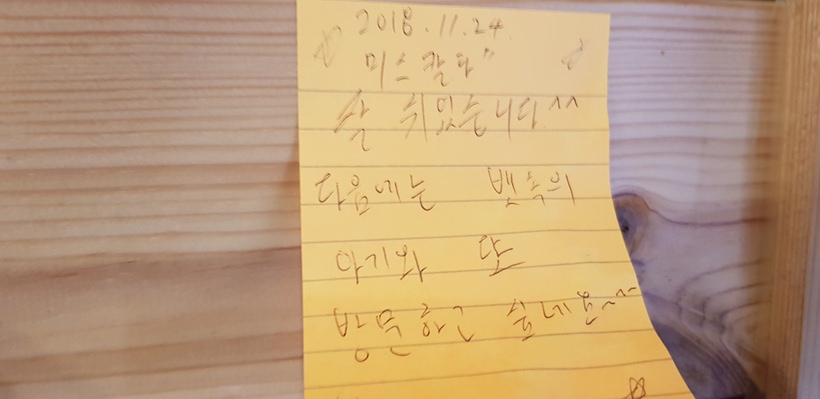 2018.11.24.
미스칼다"
잘 쉬었습니다^^
다음에는 뱃속의
아기와 또
방문하고 올게요~^^